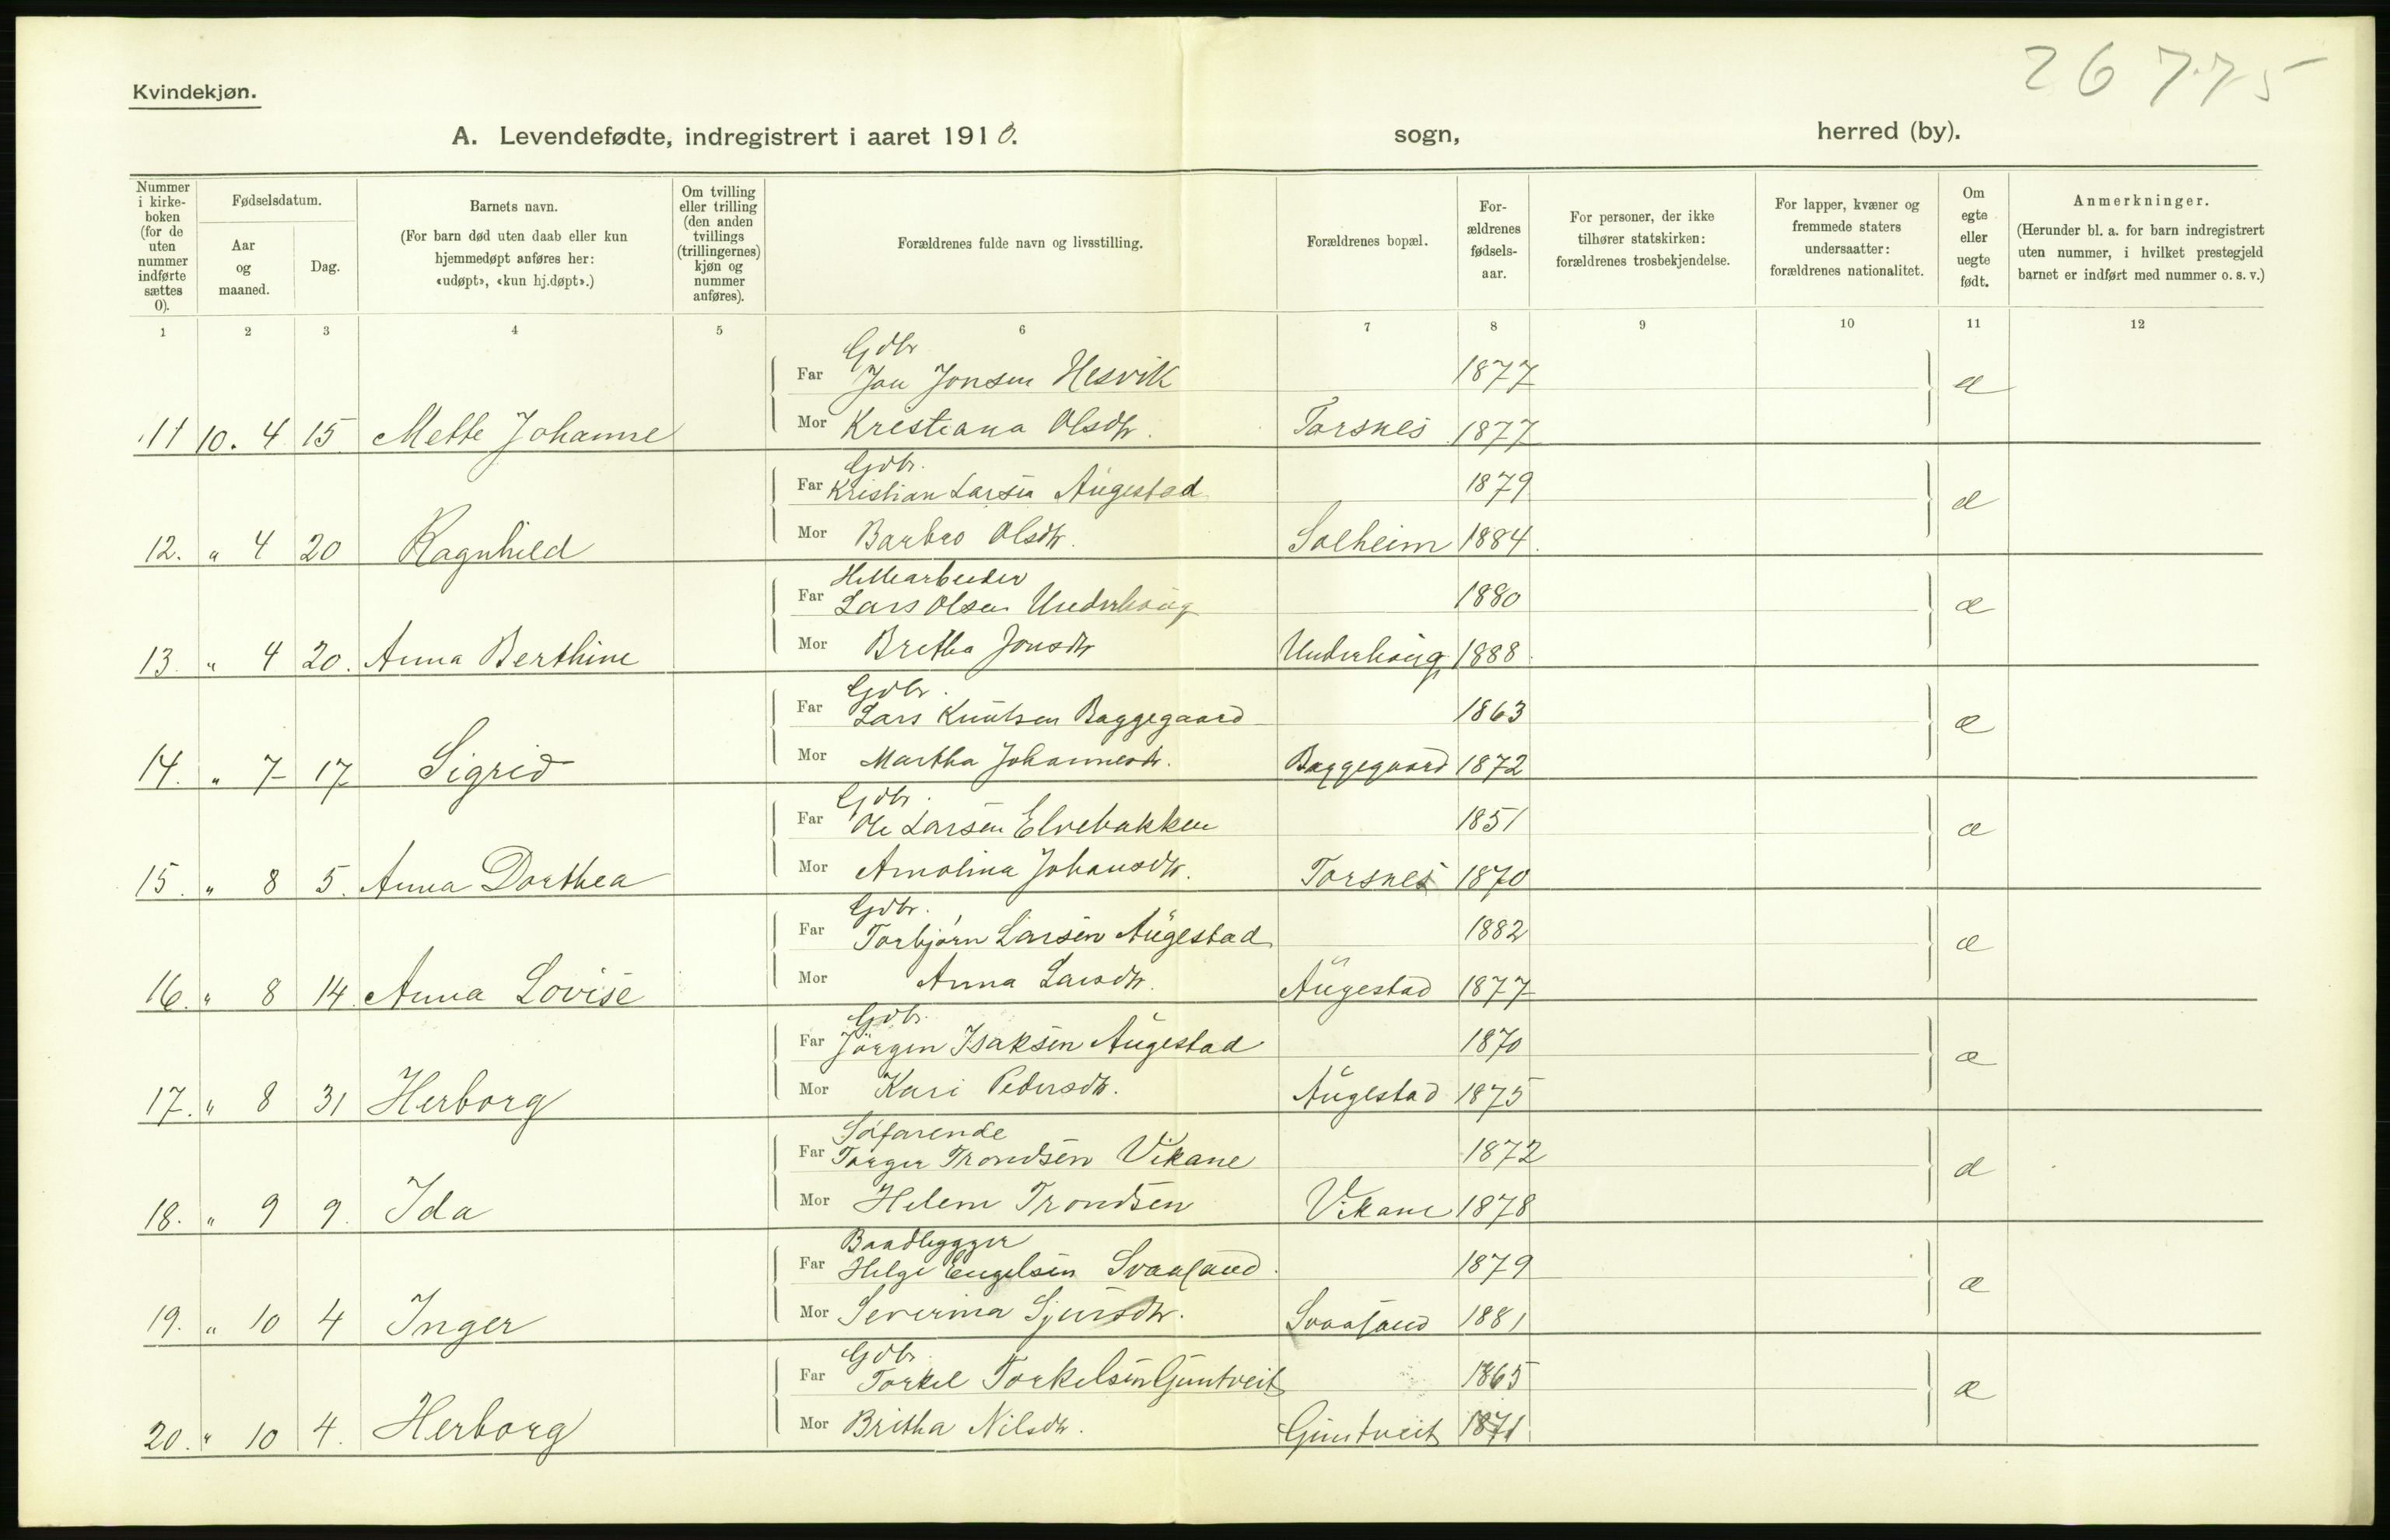 26775
Kvindekjøn.
A. Levendefødte, indregistrert i aaret 1910. sogn, herred (by).
Nummer i kirke-boken (for de uten nummer indførte sættes 0).
Fødselsdatum.
Aar og maaned.
Dag.
Barnets navn.
(For barn død uten daab eller kun hjemmedøpt anføres her: «udøpt», «kun hj.døpt».)
Om tvilling eller trilling (den anden tvillings (trillingernes) kjøn og nummer anføres).
Forældrenes fulde navn og livsstilling.
Forældrenes bopæl.
For-ældrenes fødsels-aar.
For personer, der ikke tilhører statskirken: forældrenes trosbekjendelse.
For lapper, kvæner og fremmede staters undersaatter: forældrenes nationalitet.
Om egte eller uegte født.
Anmerkninger.
(Herunder bl. a. for barn indregistrert uten nummer, i hvilket prestegjeld barnet er indført med nummer o. s. v.)
1 2 3 4 5 6 7 8 9 10 11 12
Gdbr
Far Jon Jonsen Hesvik 1877 æ
11 10. 4 15 Mette Johanne Mor Kristiana Olsdtr. Torsnes 1877
Gdbr.
Far Kristian Larsen Augestad 1879 æ
12. " 4 20 Ragnhild Mor Barbro Olsdtr. Solheim 1884.
Hellearbeider
Far Lars Olsen Underhaug 1880 æ
13. " 4 20. Anna Berthine Mor Bretha Jonsdtr Underhaug 1888
Gdbr.
Far Lars Knutsen Baggegaard 1863 æ
14. " 7 17 Sigrid Mor Martha Johannesdtr. Baggegaard 1872
Gdbr.
Far Ole Larsen Elvebakken 1851 æ
15. " 8 5. Anna Dorthea Mor Amolina Johansdtr. Torsnes 1870
Gdbr.
Far Torbjørn Larsen Augestad 1882 æ
16. " 8 14 Anna Lovise Mor Anna Larsdtr. Augestad 1877
Gdbr.
Far Jörgen Isaksen Augestad 1870 æ
17. " 8 31 Herborg Mor Kari Pedersdtr. Augestad 1875
Søfarende
Far Torger Trondsen Vikane 1872 æ
18. " 9 9. Ida Mor Helene Trondsen Vikane 1878
Baadbygger
Far Helge Engelsen Svaasand. 1879 æ
19. " 10 4 Inger Mor Severina Sjursdtr. Svaasand 1881
Gdbr.
Far Torkel Torkelsen Guntveit 1865 æ
20. " 10 4. Herborg Mor Britha Nilsdtr. Guntveit 1871